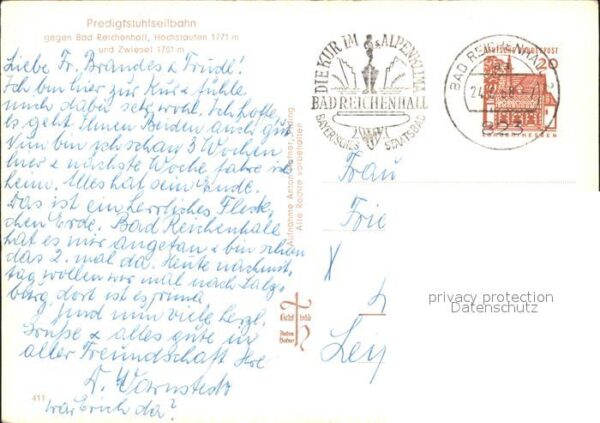 Predigtstuhlseilbahn
gegen Bad Reichenhall, Hochstaufen 1771 m
und Zwiesel 1781 m
Liebe Fr. Brandes & Trude!
Ich bin hier zur Kur & fühle
mich dabei sehr wohl. Ich hoffe,
es geht Ihnen Beiden auch gut.
Nun bin ich schon 3 Wochen
hier & nächste Woche fahre ich
heim. Alles hat sein Ende.
Das ist ein herrliches Fleck-
chen Erde. Bad Reichenhall
hat es mir angetan & bin schon
das 2. mal da. Heute nachmit-
tag wollen wir mal nach Salz-
burg, dort ist es prima.
Und nun viele herzl.
Grüße & alles gute in
alter Freundschaft Ihre
D. Warnstedt
War Erich da?
411
Aufnahme Anton Plenk Verlag
Alle Rechte vorbehalten
DIE KUR IM ALPENKLIMA
BAD REICHENHALL
BAYERISCHES STAATSBAD
BAD REICHENHALL
823
DEUTSCHE BUNDESPOST
20
Frau
Frie
Lei
privacy protection
Datenschutz